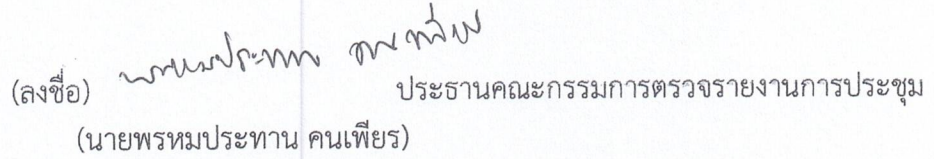 (ลงชื่อ) พรหมประทาน คนเพียร ประธานคณะกรรมการตรวจรายงานการประชุม
(นายพรหมประทาน คนเพียร)